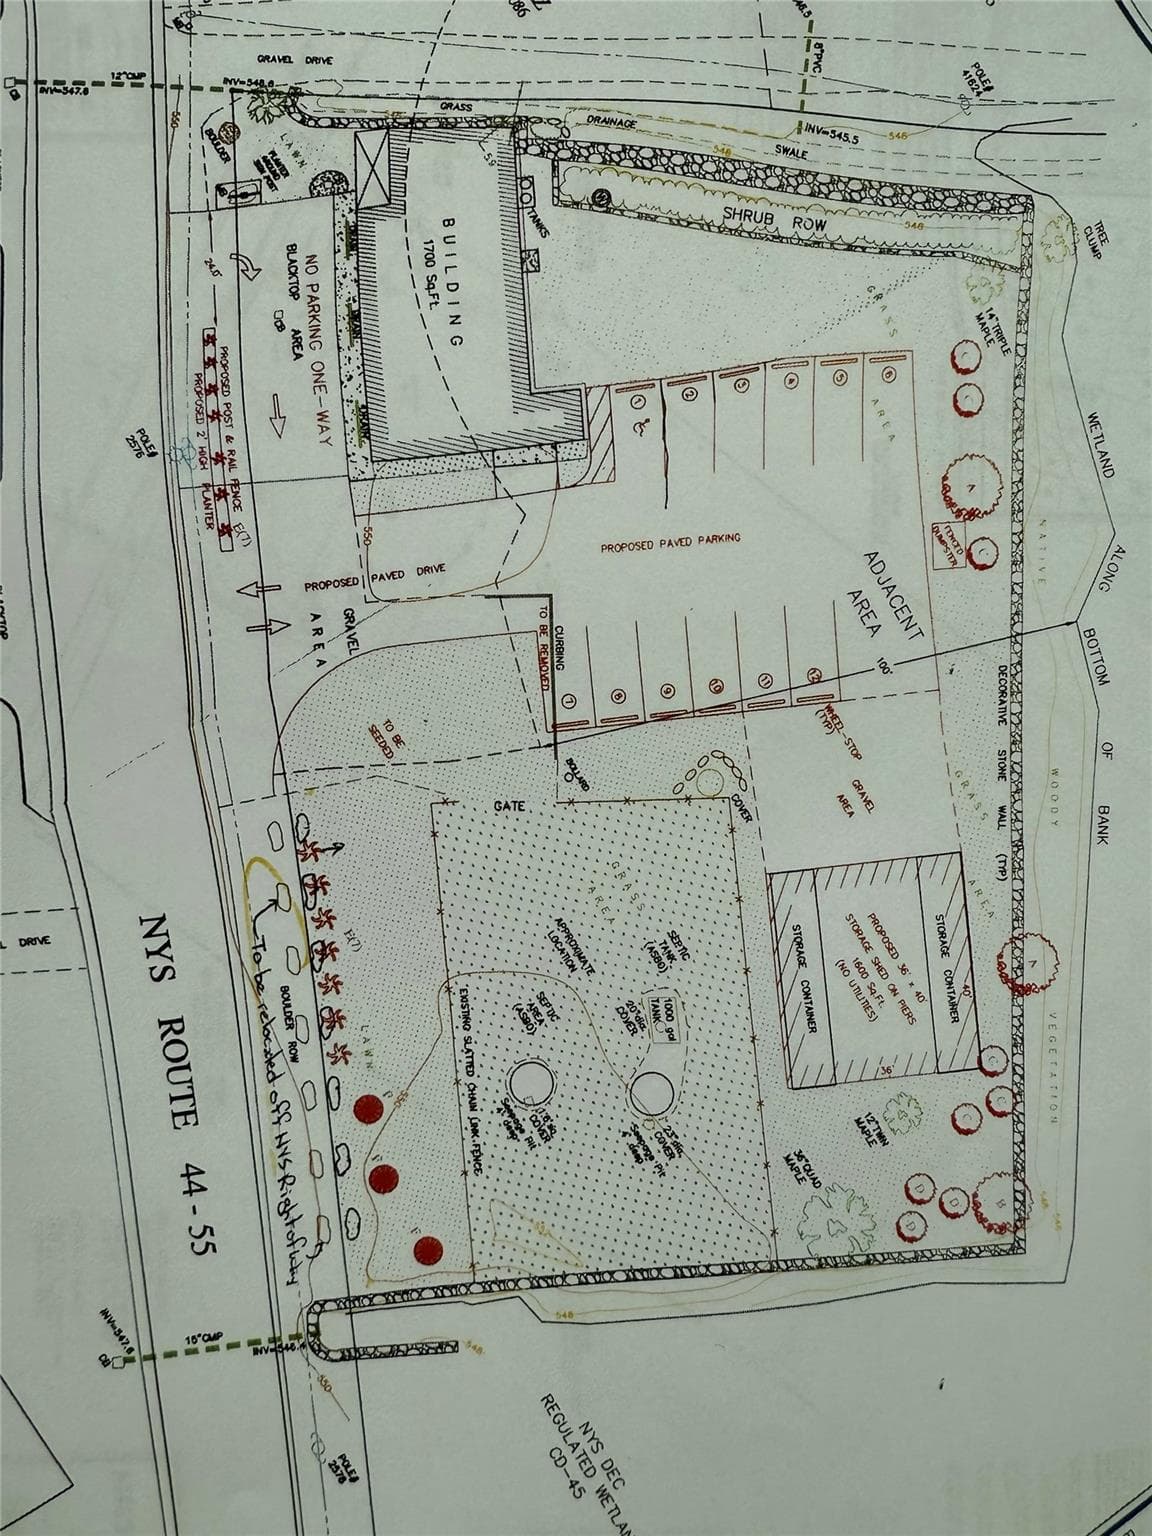 086
GRAVEL DRIVE
12"CMP
INV=547.6
CB
INV=548.6
GRASS
DRAINAGE
SWALE
8"PVC
INV=545.5
546
546
POLE#
550
BOULDER
LAWN
TANKS
SHRUB ROW
546
TREE
CLUMP
BUILDING
1700 Sq.Ft.
DRAIN
DRAIN
DRAIN
NO PARKING ONE-WAY
BLACKTOP AREA
CB
24.0'
PROPOSED POST & RAIL FENCE
PROPOSED 2' HIGH PLANTER
E(7)
POLE#
2576
GRASS
AREA
14"TRIPLE
MAPLE
C
C
A
C
FENCED
DUMPSTER
1
2
3
4
5
6
PROPOSED PAVED PARKING
550
PROPOSED PAVED DRIVE
GRAVEL
AREA
CURBING
TO BE REMOVED
ADJACENT
AREA
100'
7
8
9
10
11
12
WETLAND ALONG BOTTOM OF BANK
NATIVE
WOODY
VEGETATION
DECORATIVE STONE WALL (TYP)
TO BE
SEEDED
WHEEL-STOP
(TYP)
GRAVEL
AREA
BOLLARD
COVER
GATE
GRASS
AREA
GRASS AREA
DRIVE
NYS ROUTE 44-55
To be relocated off NYS Right of Way
BOULDER ROW
E(7)
LAWN
APPROXIMATE
LOCATION
SEPTIC
TANK
(ASBO)
SEPTIC
AREA
(ASBO)
1000 gal
TANK
20"dia.
COVER
EXISTING SLATTED CHAIN LINK FENCE
COVER
Seepage Pit
4' deep
23"dia.
COVER
Seepage Pit
deep
STORAGE CONTAINER
PROPOSED 36' x 40'
STORAGE SHED ON PIERS
1600 Sq.Ft.
(NO UTILITIES)
STORAGE CONTAINER
40'
36'
A
C
C
C
12"TWIN
MAPLE
36"QUAD
MAPLE
D
D
D
B
F
F
F
546
546
548
548
INV=547.6
CB
15"CMP
INV=546.4
550
POLE#
2576
NYS DEC
REGULATED WETLAN
CD-45